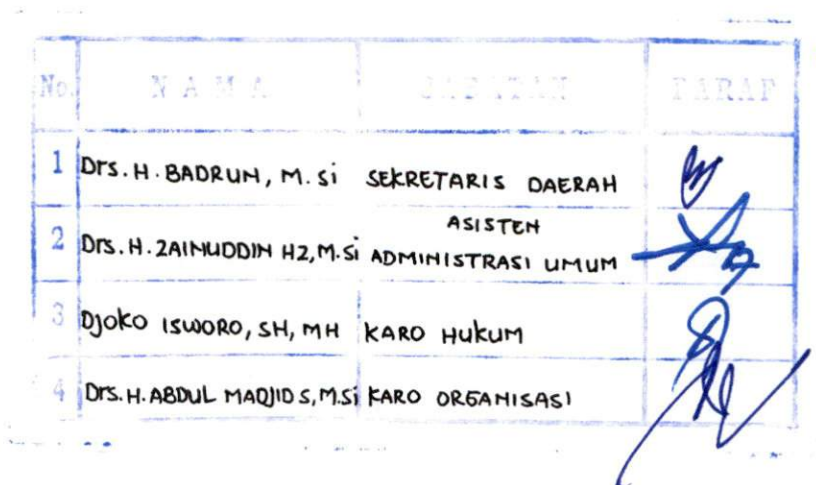 No. N A M A JABATAN PARAF
1 Drs. H. BADRUN, M. Si SEKRETARIS DAERAH
2 Drs. H. ZAINUDDIN HZ, M.Si ASISTEN ADMINISTRASI UMUM
3 DJOKO ISWORO, SH, MH KARO HUKUM
4 Drs. H. ABDUL MADJID S, M.Si KARO ORGANISASI